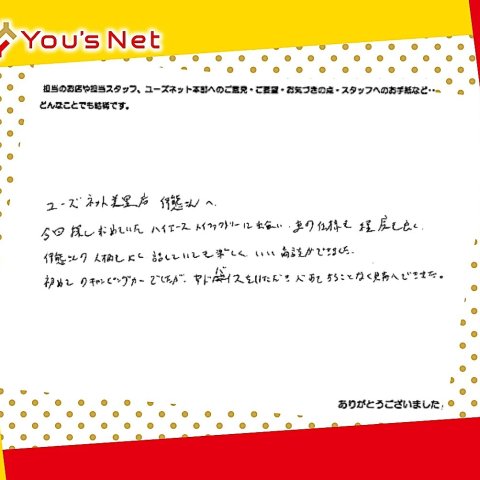 You's Net
担当のお店や担当スタッフ、ユーズネット本部へのご意見・ご要望・お気づきの点・スタッフへのお手紙など‥
どんなことでも結構です。
ユーズネット美里店 へ
今回探し求めていたハイエース トイファクトリーに出会い、車の仕様も程度も良く、
人柄もよく 話していても楽しく いい商談ができました。
初めてのキャンピングカーでしたが、アドバイスをいただき ことなく できました。
ありがとうございました